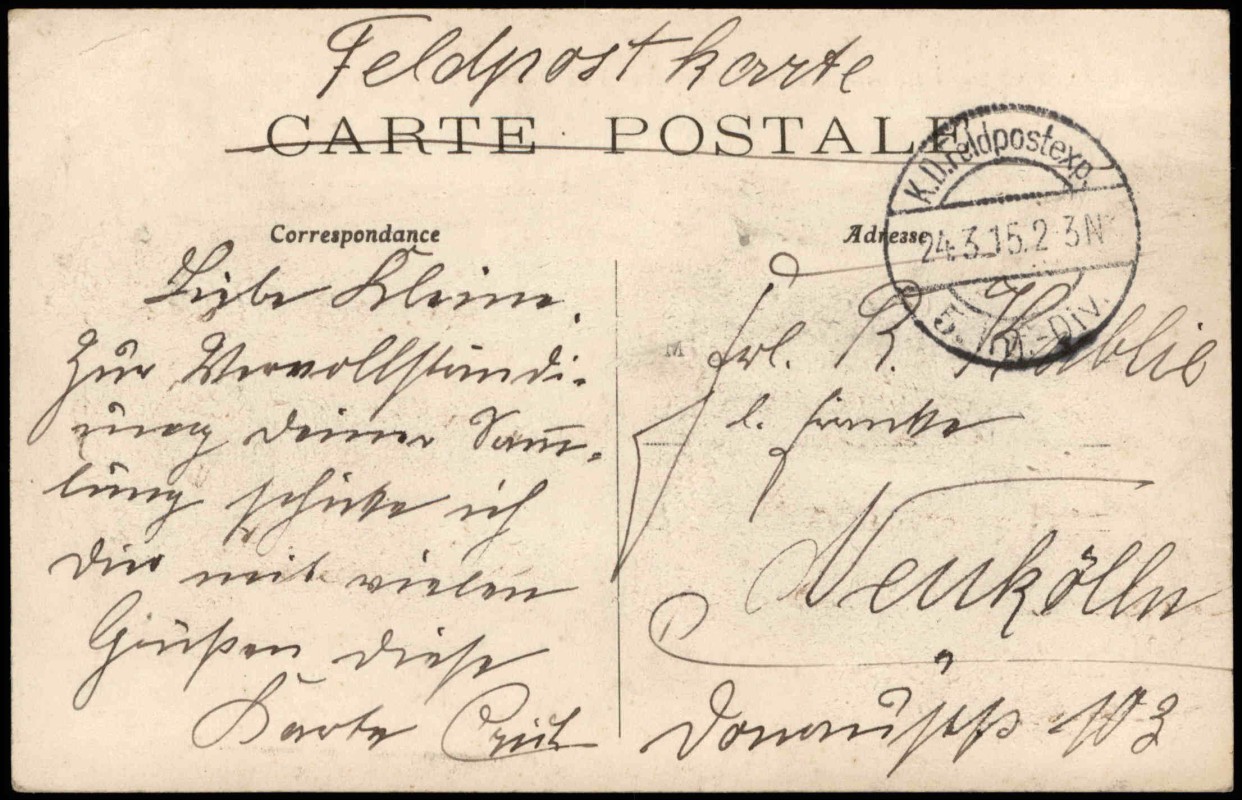 Feldpostkarte
CARTE POSTALE
K.D.Feldpostexp.
24.3.15.2-3N
5. Inf.-Div.
Correspondance
Adresse
Liebe Kleine,
Zur Vervollständi-
gung deiner Samm-
lung schicke ich
dir mit vielen
Grüßen diese
Karte
M
Frl. K.
b. Franke
Neukölln
Donaustr. 103